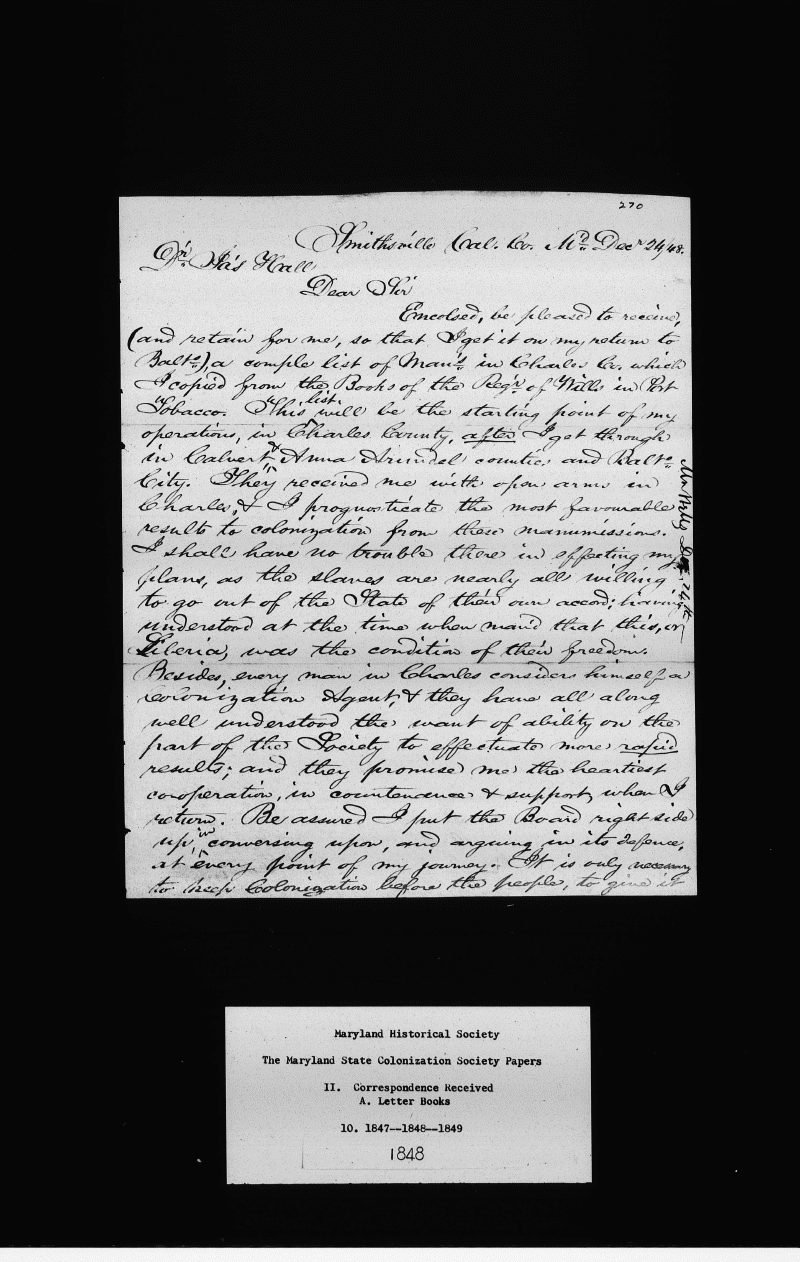 270
Smithsville Cal. Co. Md. Decr 24/48.
Dr. Ja's Hall
Dear Sir
Emcolsed, be pleased to receive,
(and retain for me, so that I get it on my return to
Balto.), a comple list of Man's in Charles Co. which
I copied from the Books of the Regr. of Wills in Port
Tobacco. This list will be the starting point of my
operations, in Charles County, after I get through
in Calvert & Anna Arundel counties and Balto.
City. They received me with open arms in
Charles, & I prognosticate the most favourable
results to colonization from these manumissions.
I shall have no trouble there in effecting my
plans, as the slaves are nearly all willing
to go out of the State of their own accord; having
understood at the time when man'd that this, or
Liberia, was the condition of their freedom.
Besides, every man in Charles considers himself a
Colonization Agent, & they have all along
well understood the want of ability on the
part of the Society to effectuate more rapid
results; and they promise me the heartiest
cooperation, in countenance & support, when I
return. Be assured I put the Board right side
up, in conversing upon, and arguing in its defence,
at every point of my journey. It is only necessary
to keep Colonization before the people, to give it
Dec. 24th
Maryland Historical Society
The Maryland State Colonization Society Papers
II. Correspondence Received
A. Letter Books
10. 1847--1848--1849
1848